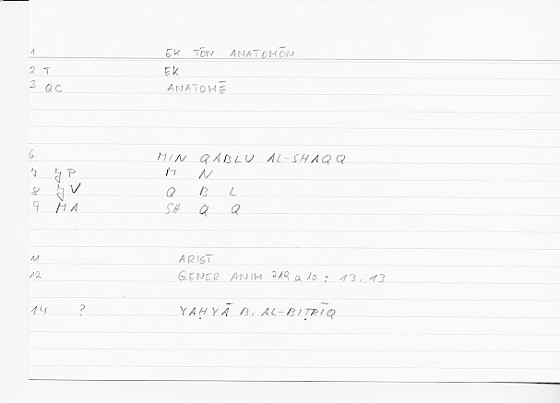 1 EK TŌN ANATOMŌN
2 T EK
3 QC ANATOMĒ
6 MIN QABLU AL-SHAQQ
7 P M N
8 V Q B L
9 MA SH Q Q
11 ARIST
12 GENER ANIM 719 a 10 : 13.13
14 ? YAḤYĀ B. AL-BIṬRĪQ